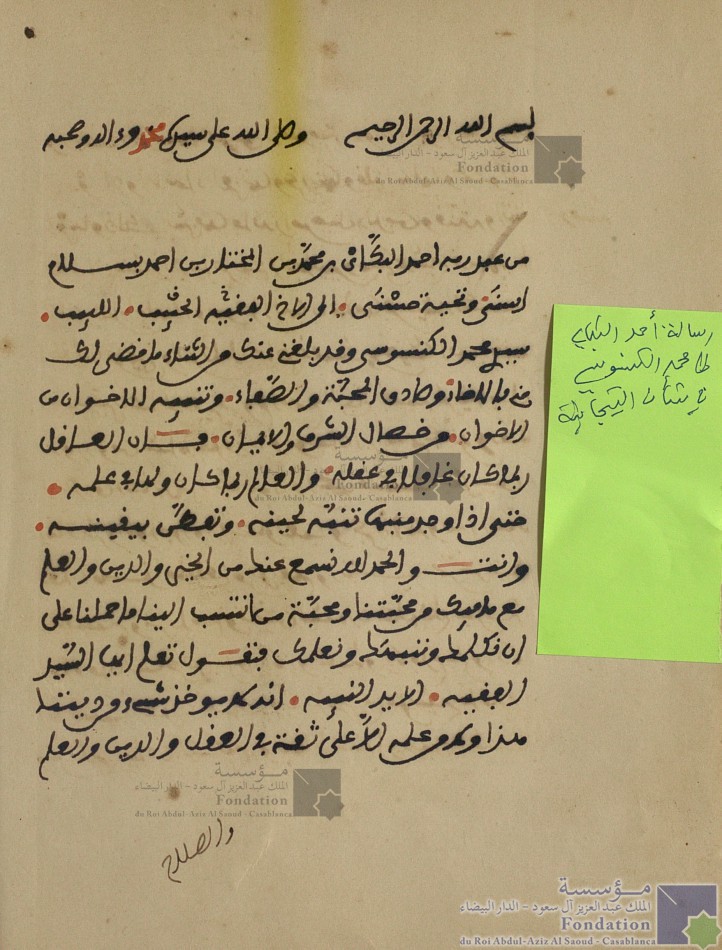 بسم الله الرحمن الرحيم وصلى الله على سيدنا محمد وءاله وصحبه
من عبد ربه احمد البكاي بن محمد بن المختار بن احمد بسلام
اسنى وتحية حسنى. الى الاخ الفقيه الحبيب. اللبيب.
سيدي محمد الكنسوسي وقد بلغني عنك من الثناء ما قضى لك
بالاخاء وصادق المحبة والصفاء. وتنبيه الاخوان من
الاخوان. من خصال الشرف والايمان. فان العاقل
ربما كان غافلا في عقله. والعالم ربما كان في علمه.
حتى اذا وجد منبها تنبه لحينه. وتفطن بيقينه.
وانت والحمد لله نسمع عنك من الخير والدين والعلم
مع ما فيك من محبتنا ومحبة من انتسب الينا ما حملنا على
ان نكلمك وننبهك ونعلمك فنقول تعلم ايها السيد
الفقيه. الابد النبيه. انه لا يوخذ شيء من ديننا
هذا ولا من علمه الا على ثقة في العقل والدين والعلم
والصلاح
رسالة أحمد البكاي
لمحمد الكنسوسي
في شأن التيجانية
مؤسسة
الملك عبد العزيز آل سعود - الدار البيضاء
Fondation
du Roi Abdul-Aziz Al Saoud - Casablanca